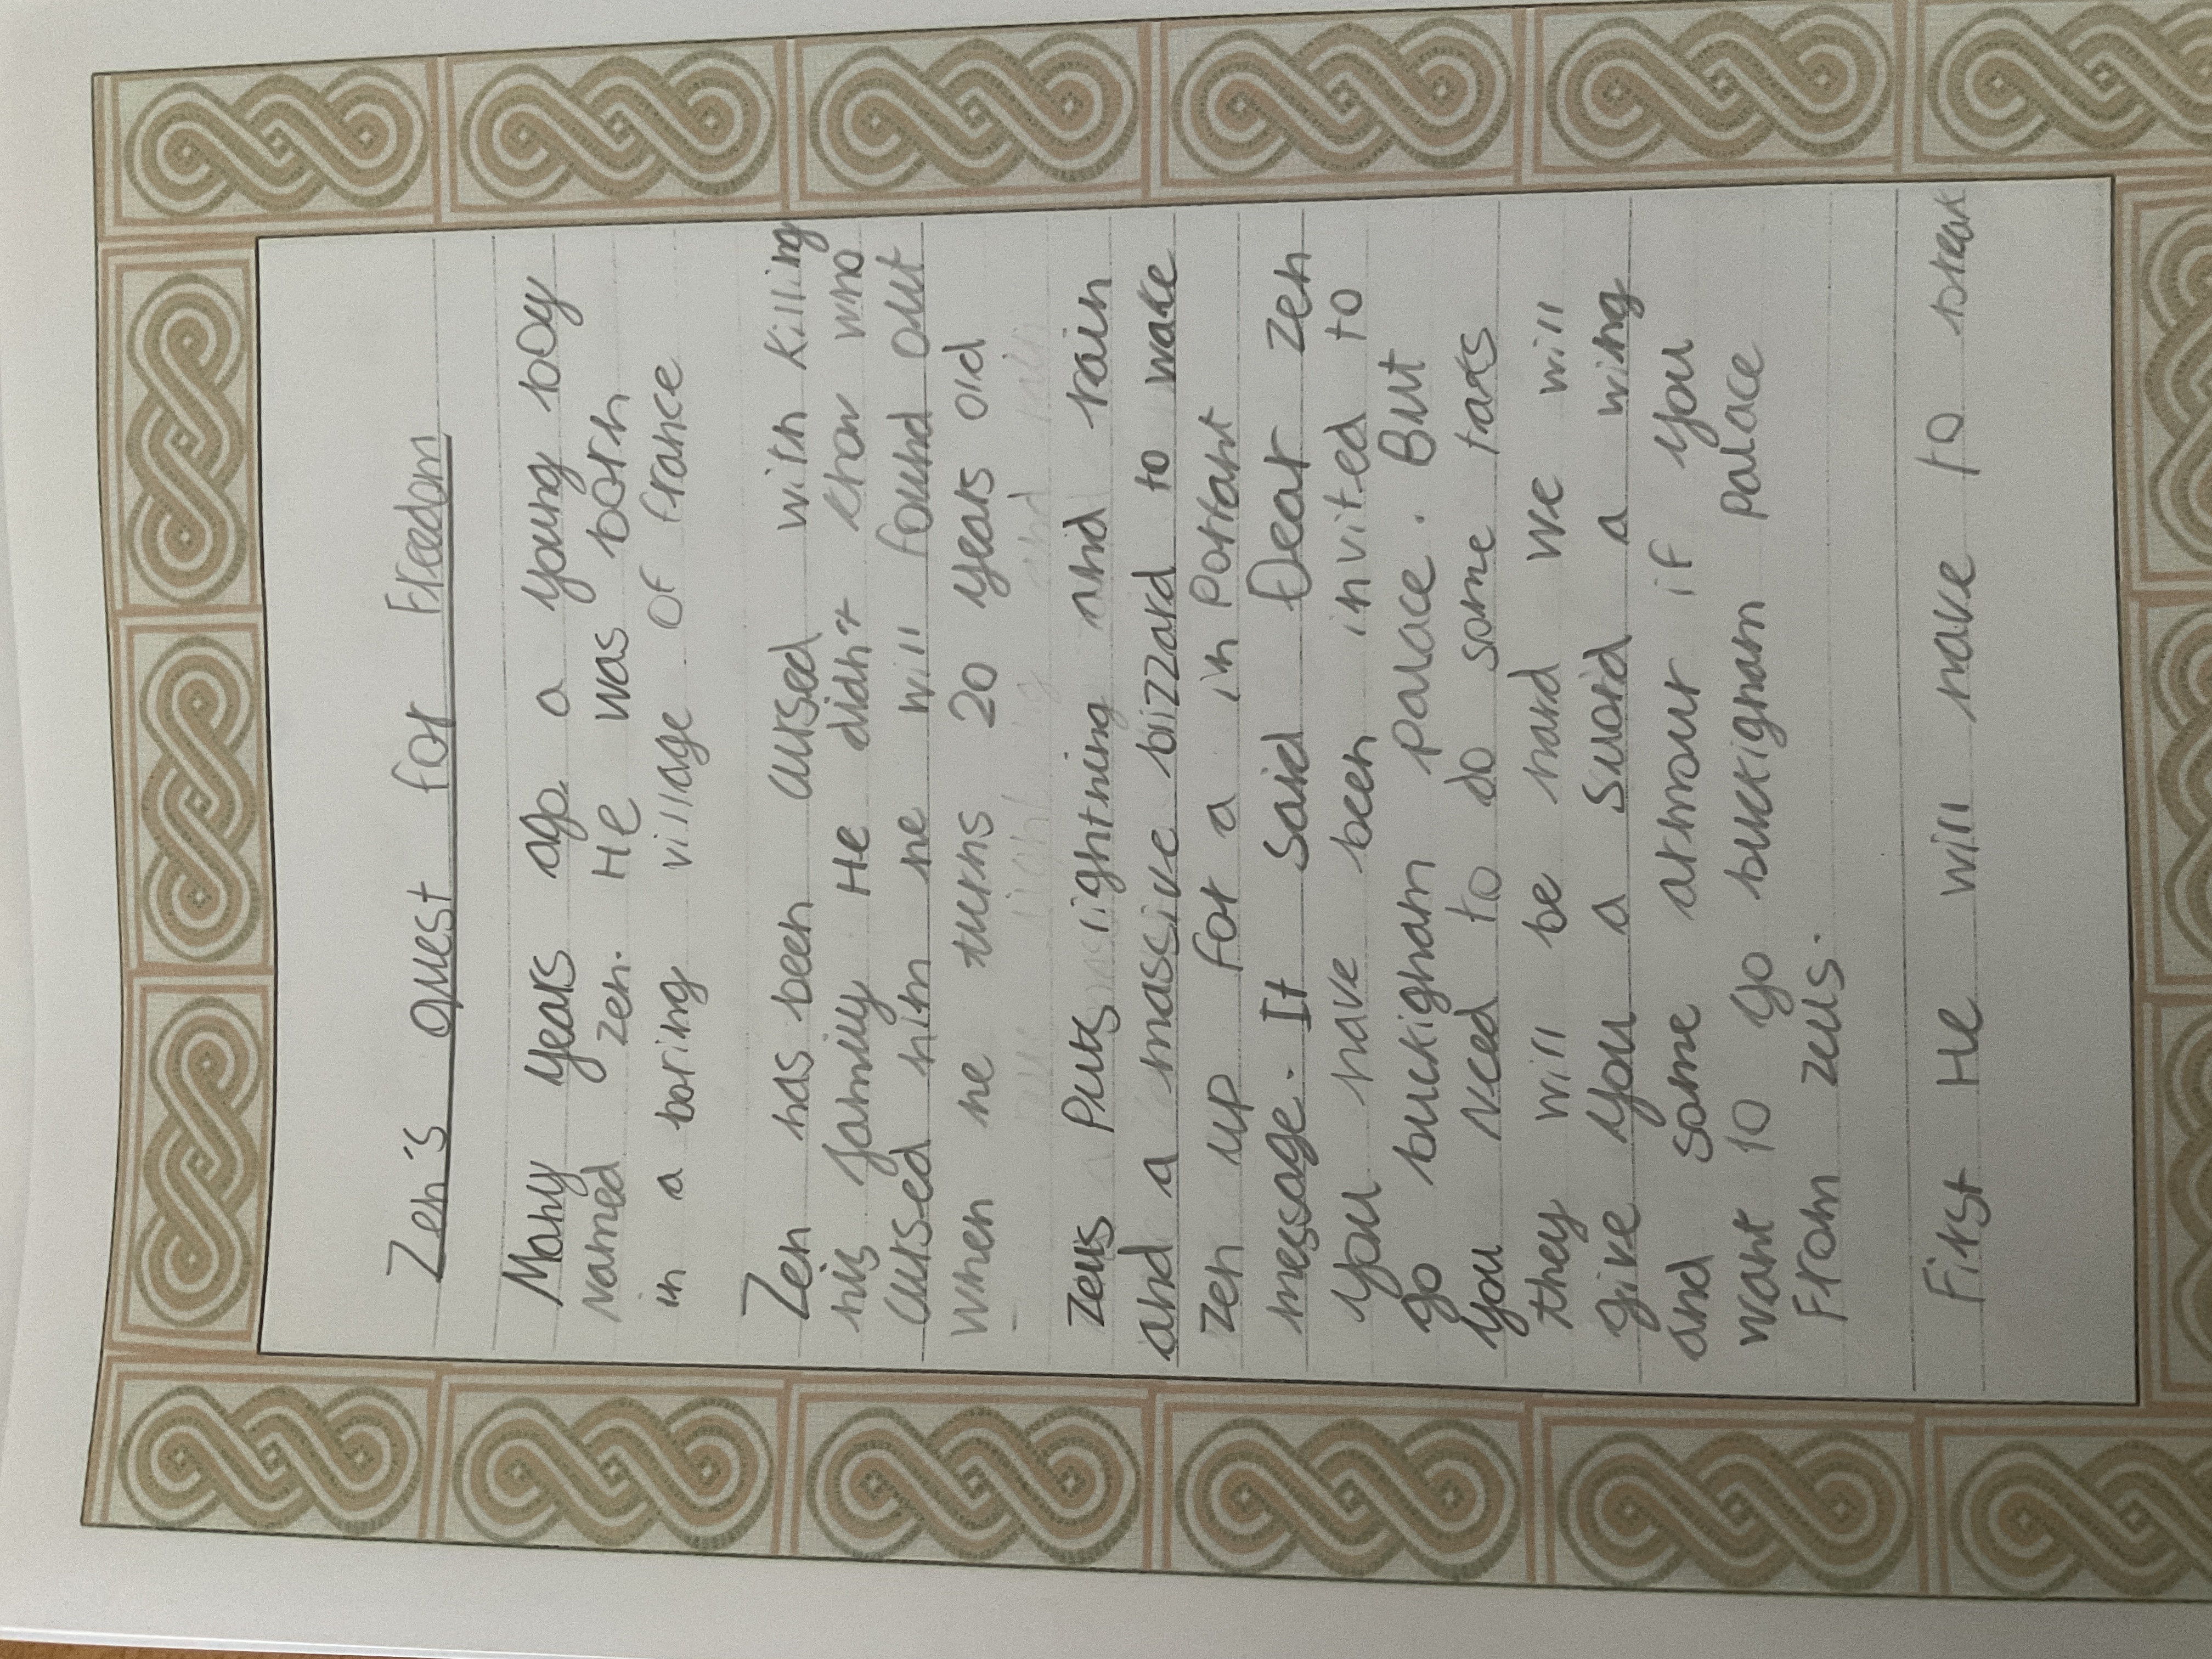 Zen's quest for Freedom
Many years ago a young boy
named zen. He was born
in a boring village of france
Zen has been cursed with killing
his family He didn't know who
cursed him he will found out
When he turns 20 years old
Zeus Puts lightning and rain
and a massive bizzard to wake
Zen up for a in Portant
message. It said Dear Zen
you have been invited to
go buckigham palace. But
you need to do some taks
they will be hard we will
give you a sword a wing
and some armour if you
want to go buckigham palace
From zeus.
First He will have to break